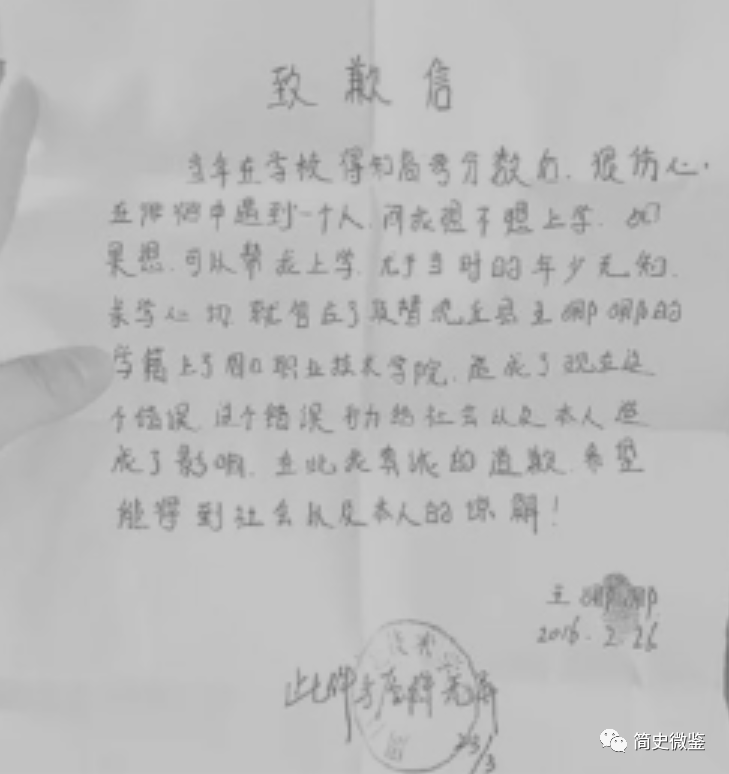 致歉信
当年在学校得知高考分数后.很伤心.
在徘徊中遇到一个人.问我想不想上学.如
果想.可以帮我上学.尤于当时的年少无知.
求学心切.就信在了及替沈丘县王娜娜的
学籍上了周口职业技术学院.造成了现在这
个错误.这个错误 为给社会以及本人造
成了影响.在此我真诚的道歉.希望
能得到社会以及本人的谅解!
王娜娜
2016.2.26
技术学
此件与原件无异
23/3
简史微鉴